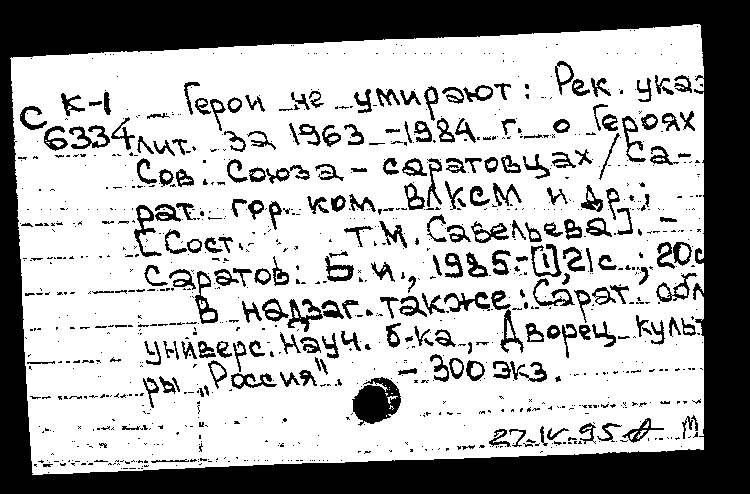 К-1 Герои не умирают: Рек. указ
С 6334 лит. за 1963-1984 г. о Героях
Сов. Союза - саратовцах / Са-
рат. гор. ком. ВЛКСМ и др.;
[Сост. Т.М. Савельева]. -
Саратов: Б.и., 1985.-[1],21с.; 20с
В надзаг. также: Сарат. обл
универс. науч. б-ка, Дворец культ
ры „Россия". - 300 экз.
27.IV.95